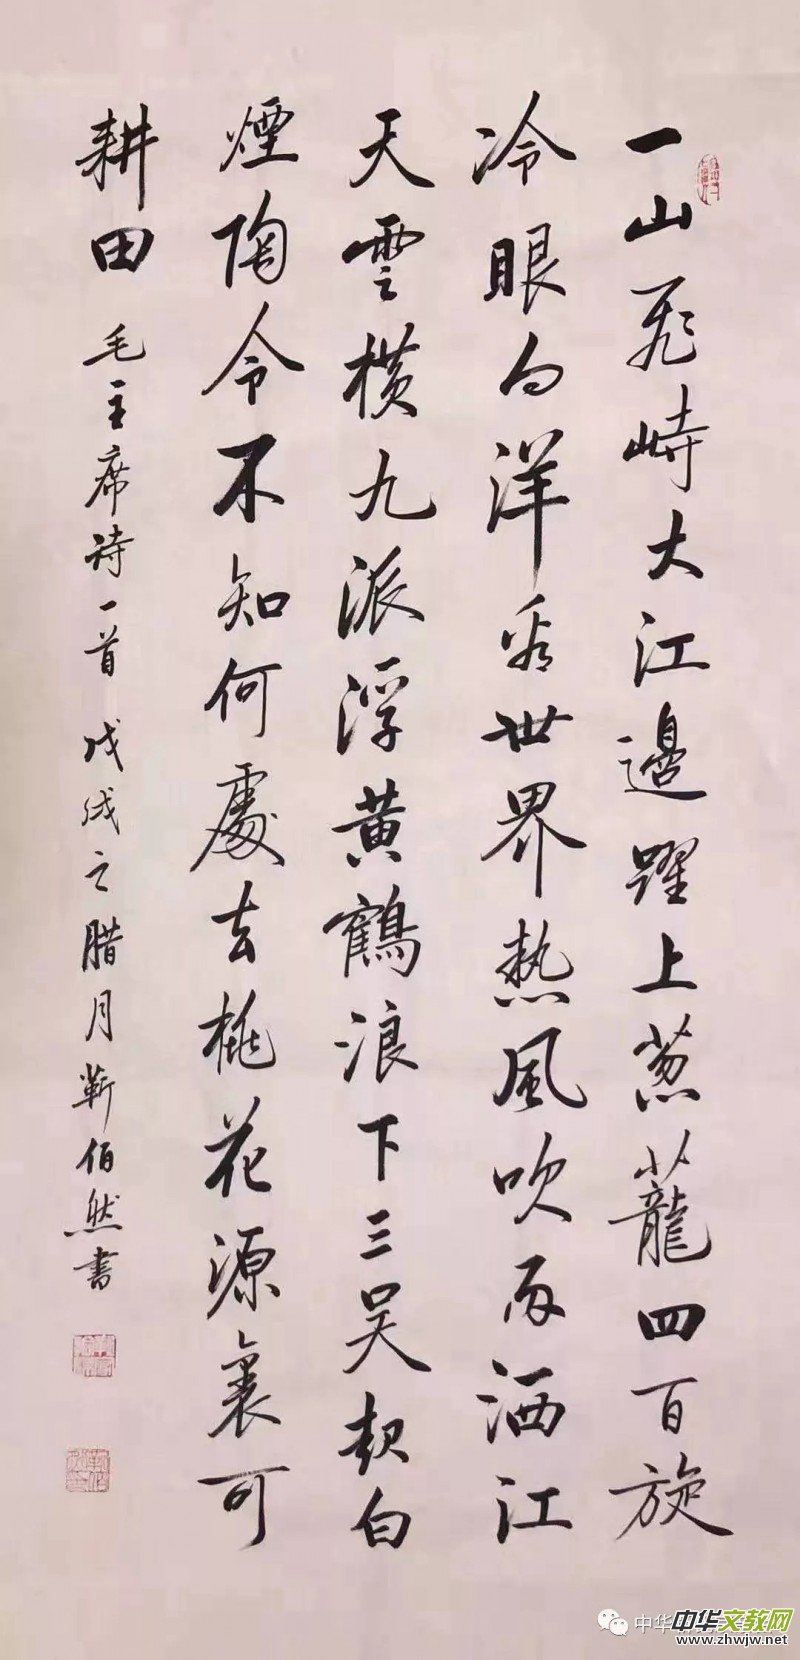 一山飛峙大江邊躍上葱蘢四百旋
冷眼向洋看世界熱風吹雨洒江
天雲横九派浮黄鶴浪下三吴起白
煙陶令不知何處去桃花源裏可
耕田 毛主席詩一首 戊戌之腊月靳佰然書
中华文教网
www.zhwjw.net